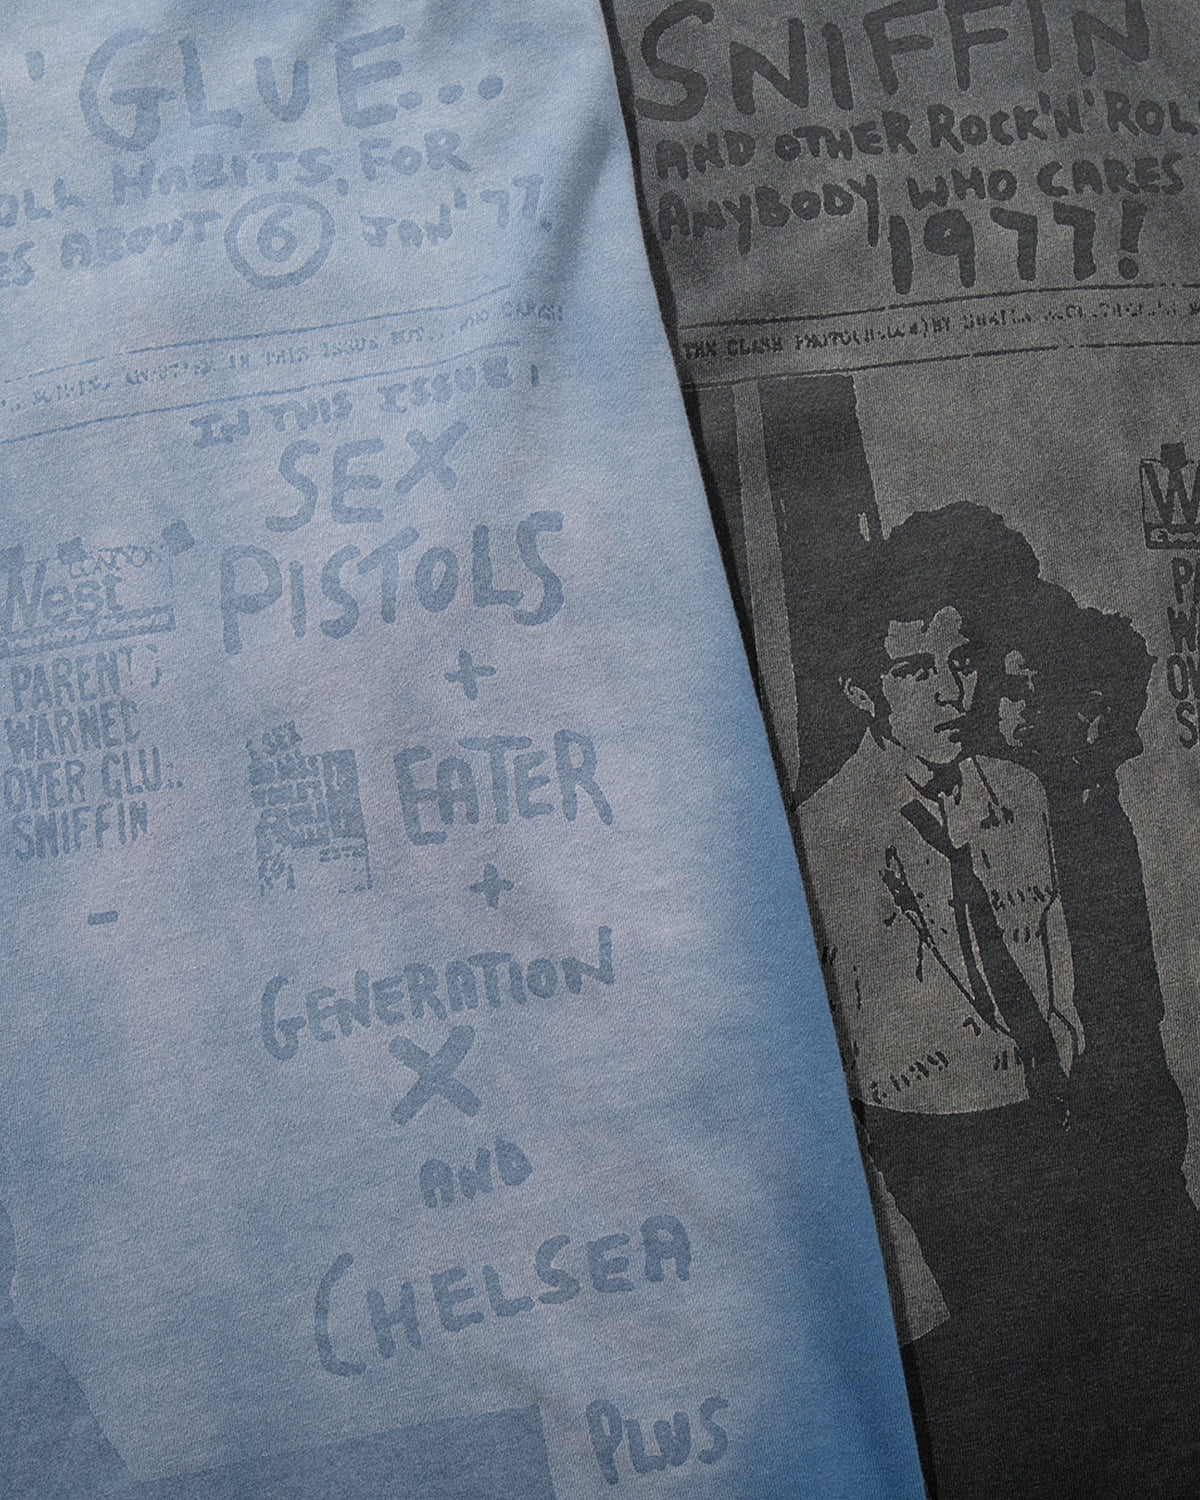 ' GLUE...
OLL HABITS, FOR
ES ABOUT 6 JAN' 77.
IN THIS ISSUE
IN THIS ISSUE,
SEX
PISTOLS
+
LONDON
West
PARENTS
WARNED
OVER GLUE
SNIFFIN
-
EATER
+
GENERATION
X
AND
CHELSEA
PLUS
SNIFFIN
AND OTHER ROCK'N' ROL
ANYBODY WHO CARES
1977!
THE CLASH PHOTO(BELOW)BY
W